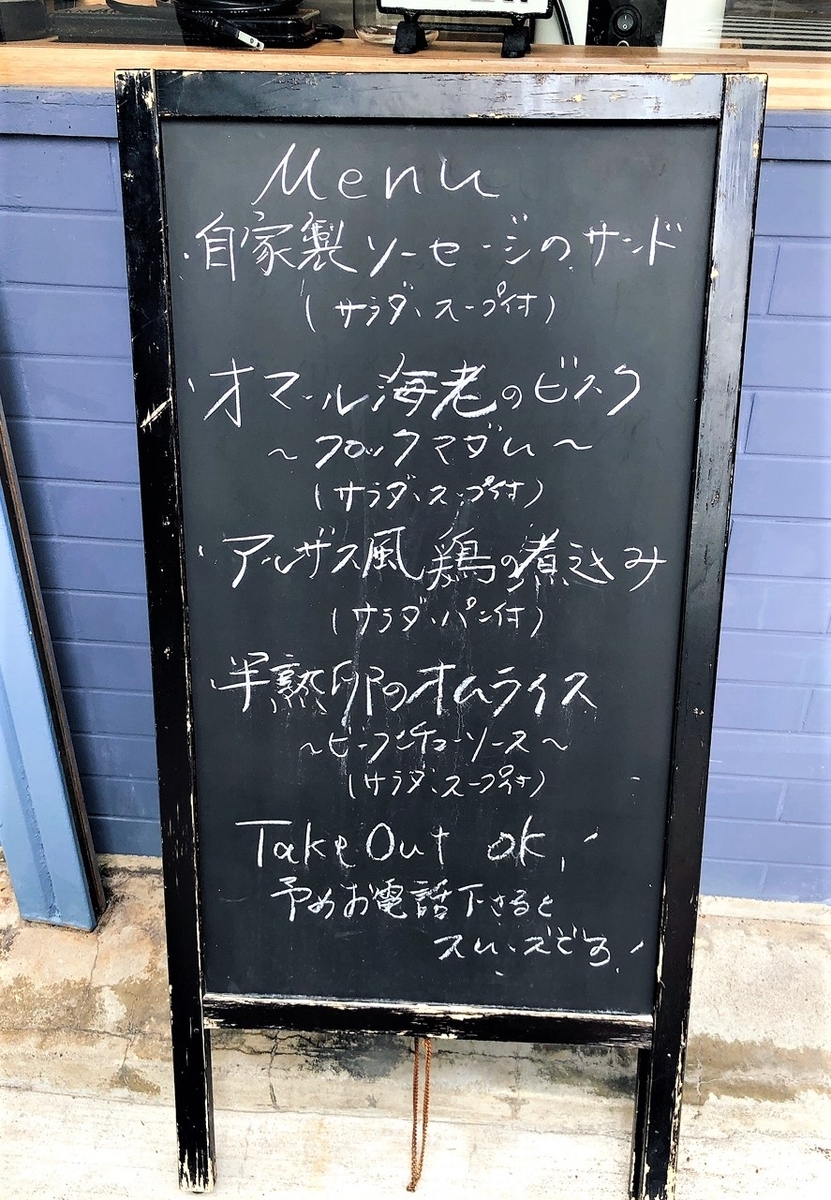 Menu
・自家製ソーセージのサンド
(サラダ、スープ付)
・オマール海老のビスク
～クロックマダム～
(サラダ、スープ付)
・アルザス風鶏の煮込み
(サラダ、パン付)
・半熟卵のオムライス
～ビーフシチューソース～
(サラダ、スープ付)
Take Out ok!
予めお電話下さると
スムーズです!